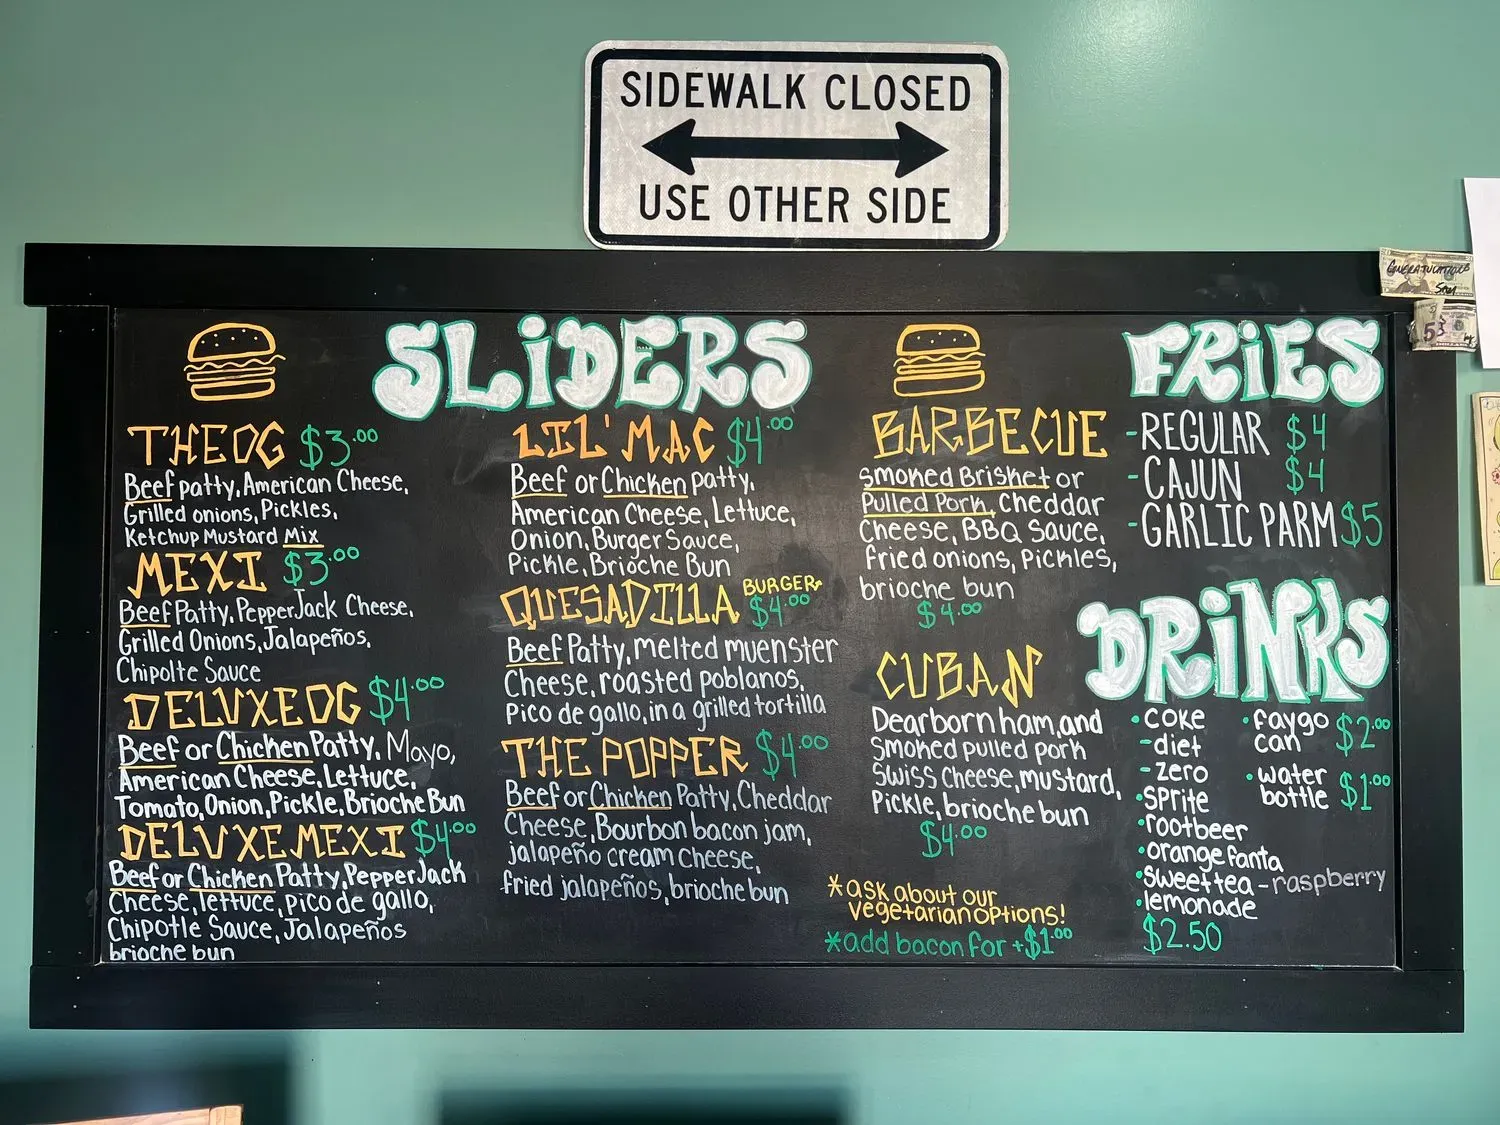 SIDEWALK CLOSED
USE OTHER SIDE
CONGRATULATIONS
SLiDERS
THE OG $3.00
Beef patty, American Cheese,
Grilled onions, Pickles,
Ketchup Mustard Mix
MEXI $3.00
Beef Patty, PepperJack Cheese,
Grilled Onions, Jalapeños,
Chipolte Sauce
DELUXE OG $4.00
Beef or Chicken Patty, Mayo,
American Cheese, Lettuce,
Tomato, Onion, Pickle, Brioche Bun
DELUXE MEXI $4.00
Beef or Chicken Patty, PepperJack
Cheese, lettuce, pico de gallo,
Chipotle Sauce, Jalapeños
brioche bun
LIL' MAC $4.00
Beef or Chicken patty,
American Cheese, Lettuce,
Onion, Burger Sauce,
Pickle, Brioche Bun
QUESADILLA BURGER $4.00
Beef Patty, melted muenster
Cheese, roasted poblanos,
Pico de gallo, in a grilled tortilla
THE POPPER $4.00
Beef or Chicken Patty, Cheddar
Cheese, Bourbon bacon jam,
jalapeño cream cheese,
fried jalapeños, brioche bun
BARBECUE
smoked Brisket or
Pulled Pork, Cheddar
Cheese, BBQ Sauce,
fried onions, Pickles,
brioche bun
$4.00
CUBAN
Dearborn ham, and
smoked pulled pork
Swiss Cheese, mustard,
Pickle, brioche bun
$4.00
*ask about our
vegetarian options!
*add bacon for +$1.00
FRiES
-REGULAR $4
-CAJUN $4
-GARLIC PARM $5
DRiNKS
•coke
-diet
-zero
•sprite
•rootbeer
•orange fanta
•sweet tea - raspberry
•lemonade
$2.50
•faygo can $2.00
•water bottle $1.00